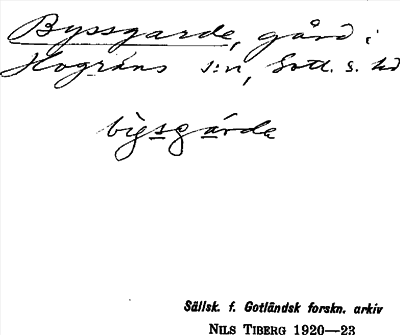 Byssgarde, gård i
Hogräns s:n, Gotl. s. hd
bysgárde
Sällsk. f. Gotländsk forskn. arkiv
NILS TIBERG 1920—23